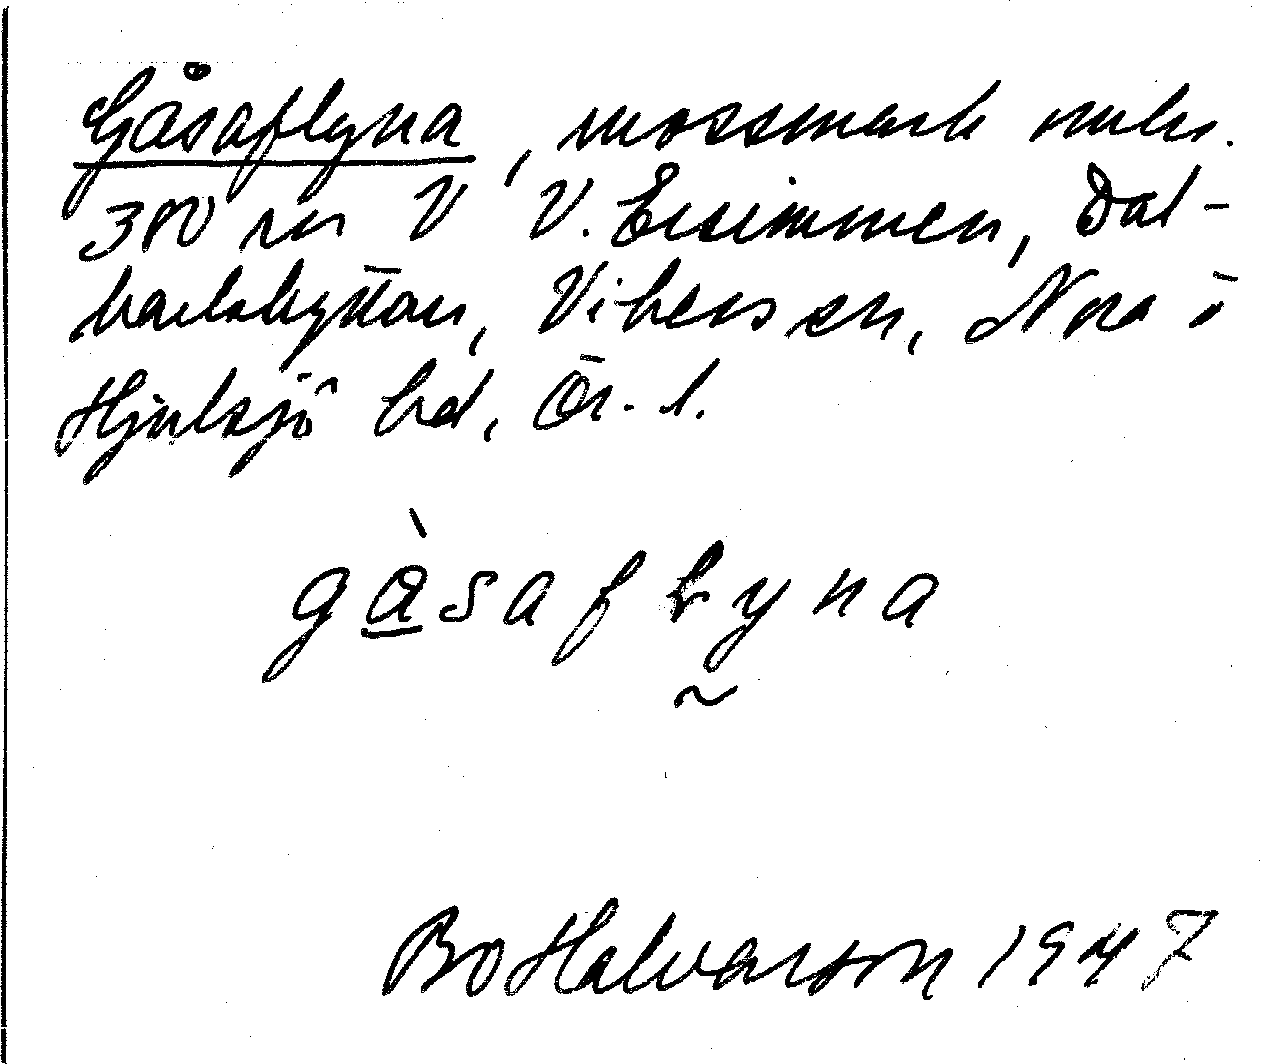 Gåsaflyna, mossmark omkr.
300 m V V. Ensimmen, Dal-
karlshyttan, Vikers sn, Nora o
Hjulsjö bd, Ör. l.
gàsaflyna
Bo Halvarson 1947